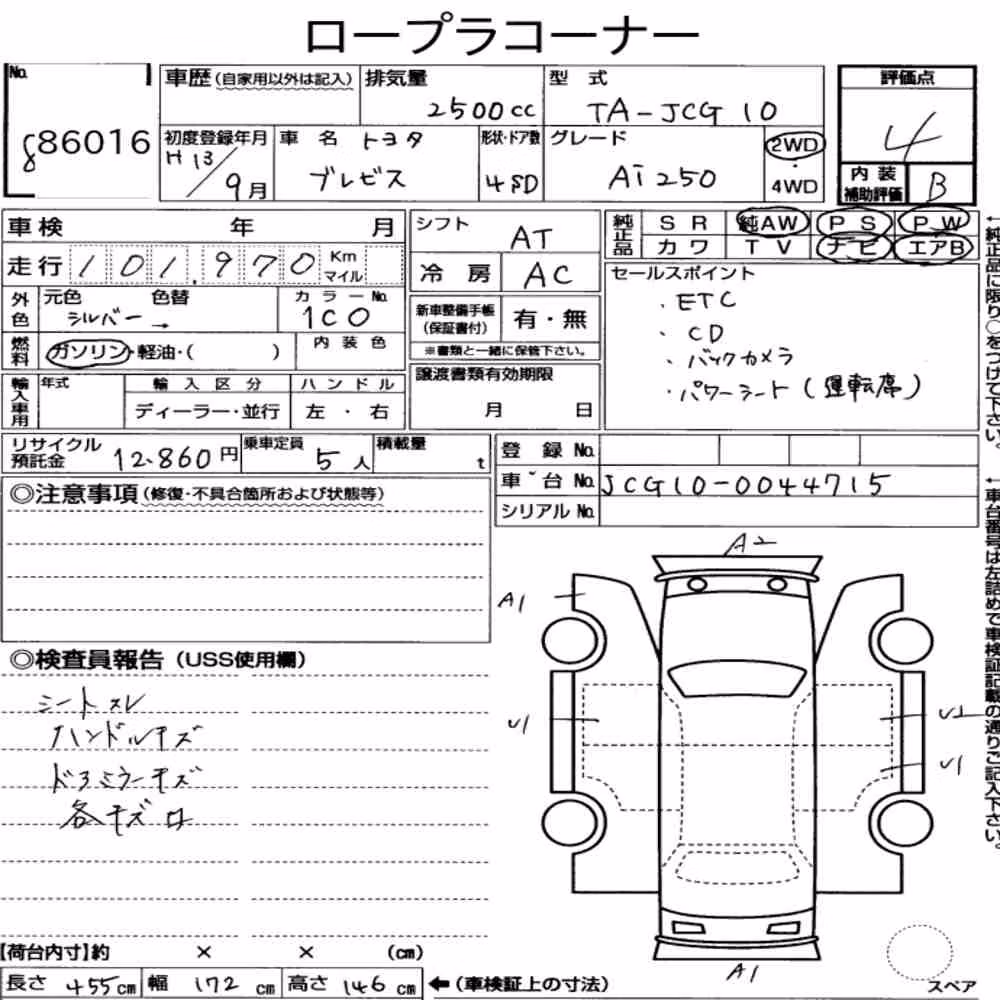 ロープラコーナー
No.
886016
車歴(自家用以外は記入)
排気量
2500cc
型式
TA-JCG10
評価点
4
内装
補助評価
B
初度登録年月
H13/9月
車名
トヨタ
ブレビス
形状・ドア数
4SD
グレード
Ai250
2WD
・
4WD
車検 年 月
走行 101,970 Km
マイル
外色
元色 色替
シルバー→
カラーNo.
1C0
燃料
ガソリン・軽油・( )
内装色
輸入車用
年式
輸入区分
ディーラー・並行
ハンドル
左・右
シフト
AT
冷房
AC
新車整備手帳
(保証書付)
有・無
※書類と一緒に保管下さい。
譲渡書類有効期限
月 日
純正品
SR 純AW PS PW
カワ TV ナビ エアB
セールスポイント
・ETC
・CD
・バックカメラ
・パワーシート(運転席)
←純正品に限り○をつけて下さい。
リサイクル
預託金
12.860円
乗車定員
5人
積載量
t
登録No.
車台No.
JCG10-0044715
シリアルNo.
←車台番号は左詰めで車検証記載の通りご記入下さい。
◎注意事項(修復・不具合箇所および状態等)
◎検査員報告(USS使用欄)
シートスレ
ハンドルキズ
ドアミラーキズ
各キズ
A2
A1
U1
U2
U1
A1
スペア
【荷台内寸】約 × × (cm)
長さ 455cm 幅 172cm 高さ 146cm
←(車検証上の寸法)